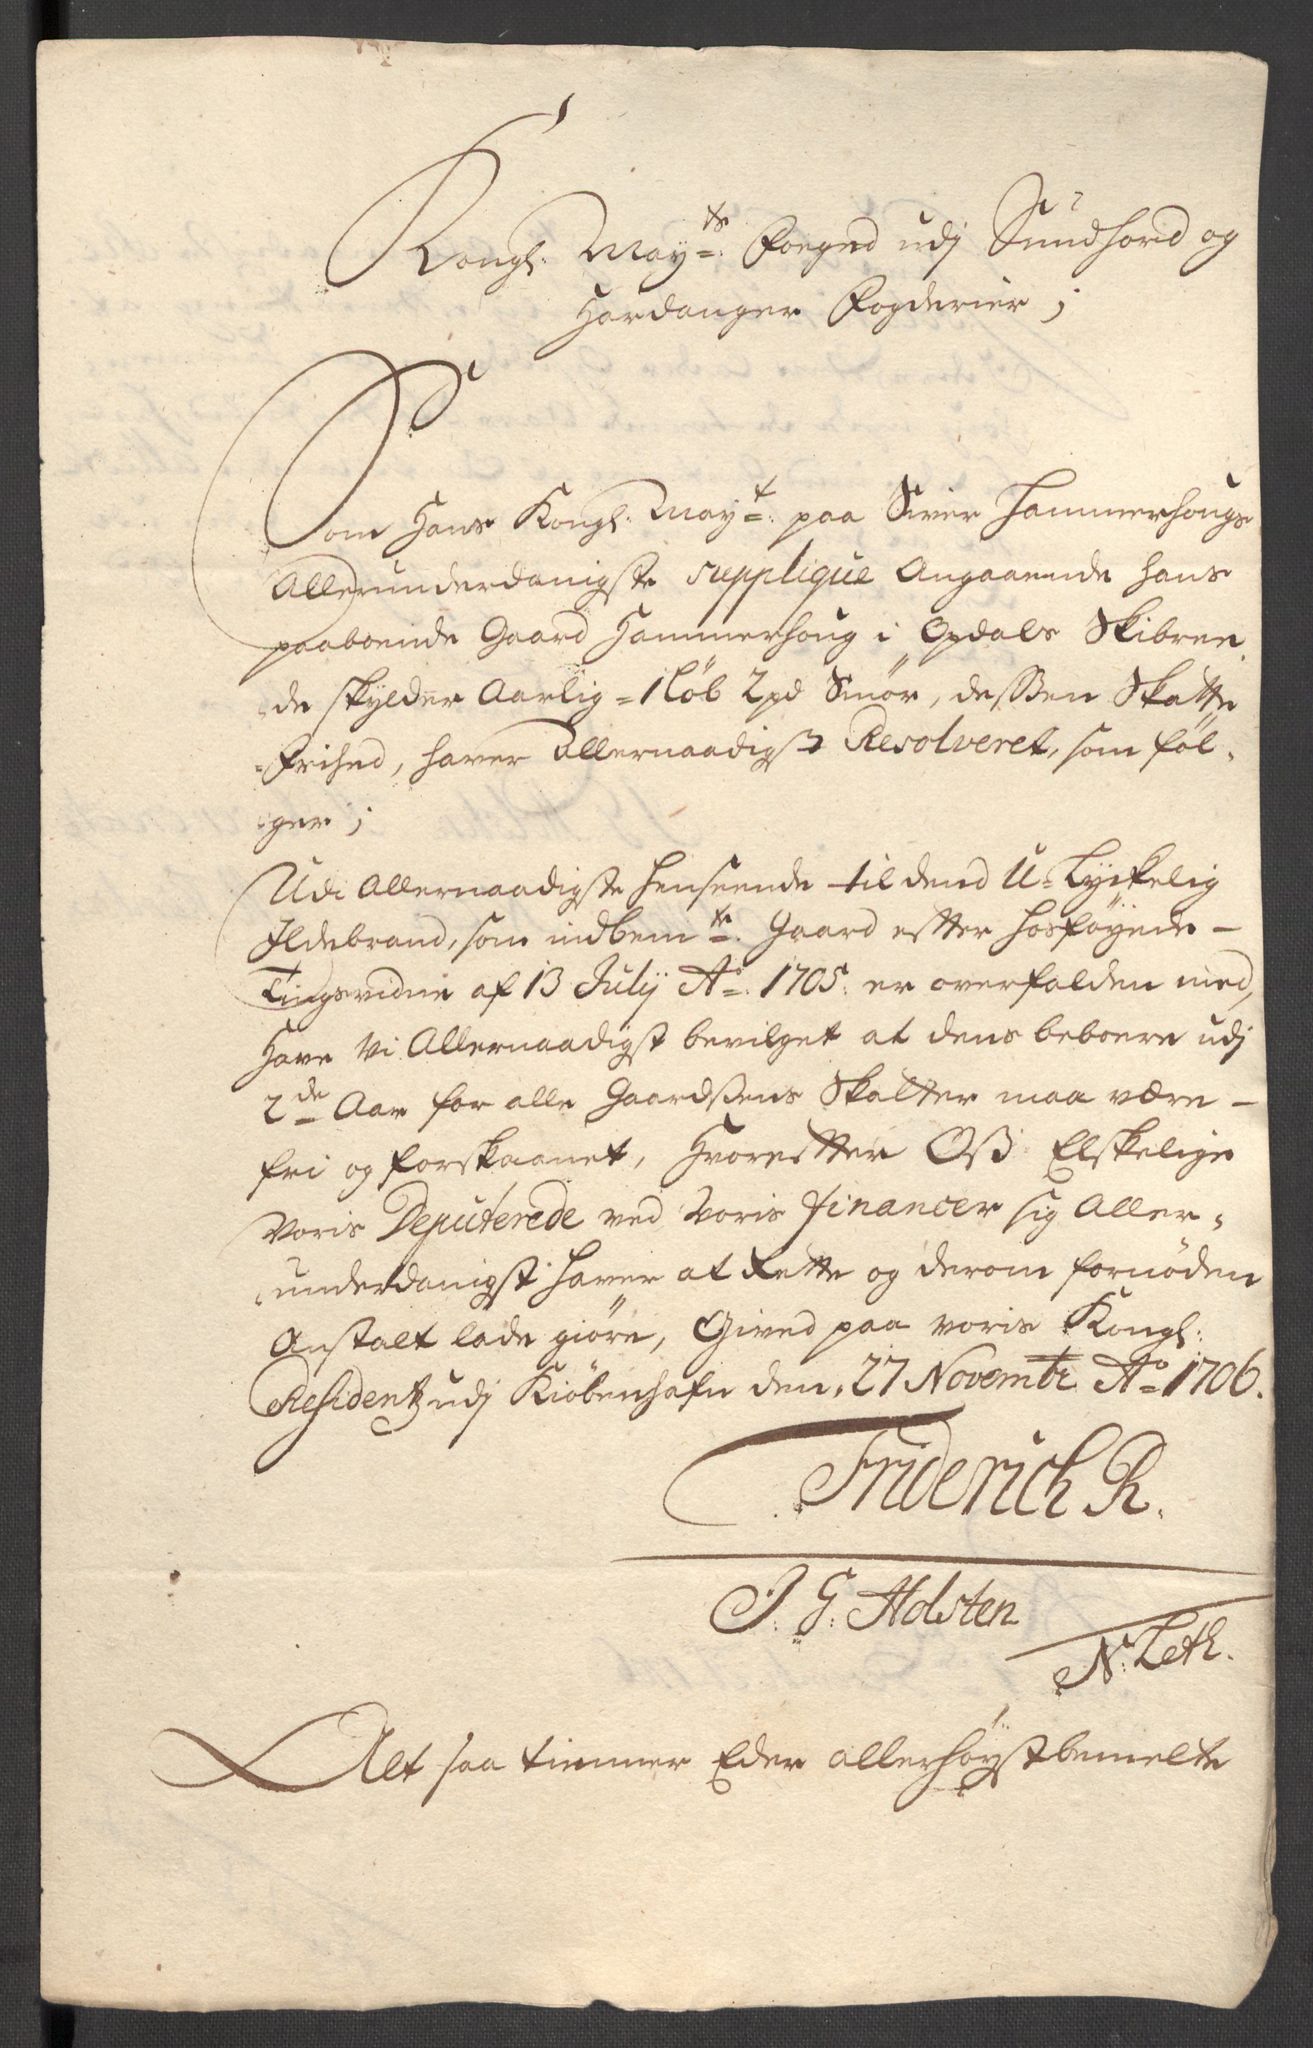 Kongl: May:ts Foeged udj Sundhord og
Hardanger Fogderier;
Som Hans Kongl: May:t paa Siver Hammerhougs
Allerunderdanigste supplique Angaaende hans
paaboende Gaard Hammerhoug i Opdals Skibree,
de skylder Aarlig = 1 löb 2 pd Smör, dessen Skatte
frihed, haver Allernaadigst Resolveret, som föl,
ger;
Udi Allernaadigste henseende til dend U=Lyckelig
Ildebrand, som indbem:te Gaard efter hosföyede –
Tingsvidne af 13 Julij Ao 1705. er overfalden med,
Have Vi Allernaadigst bevilget at dens beboere udj
2de Aar for alle Gaardsens Skatter maa være –
fri og forskaanet, Hvorefter Oss Elskelige
Voris Deputerede ved Voris Financer sig Aller,
underdanigst haver at Rette og derom fornöden
Anstalt lade giöre, Gived paa voris Kongl:
Residentz udj Kiöbenhafn den, 27 Novembr Ao 1706.
Friderich R.
J. G. Holsten
N: Leth.
Alt saa timmer Eder allerhöystbemelte